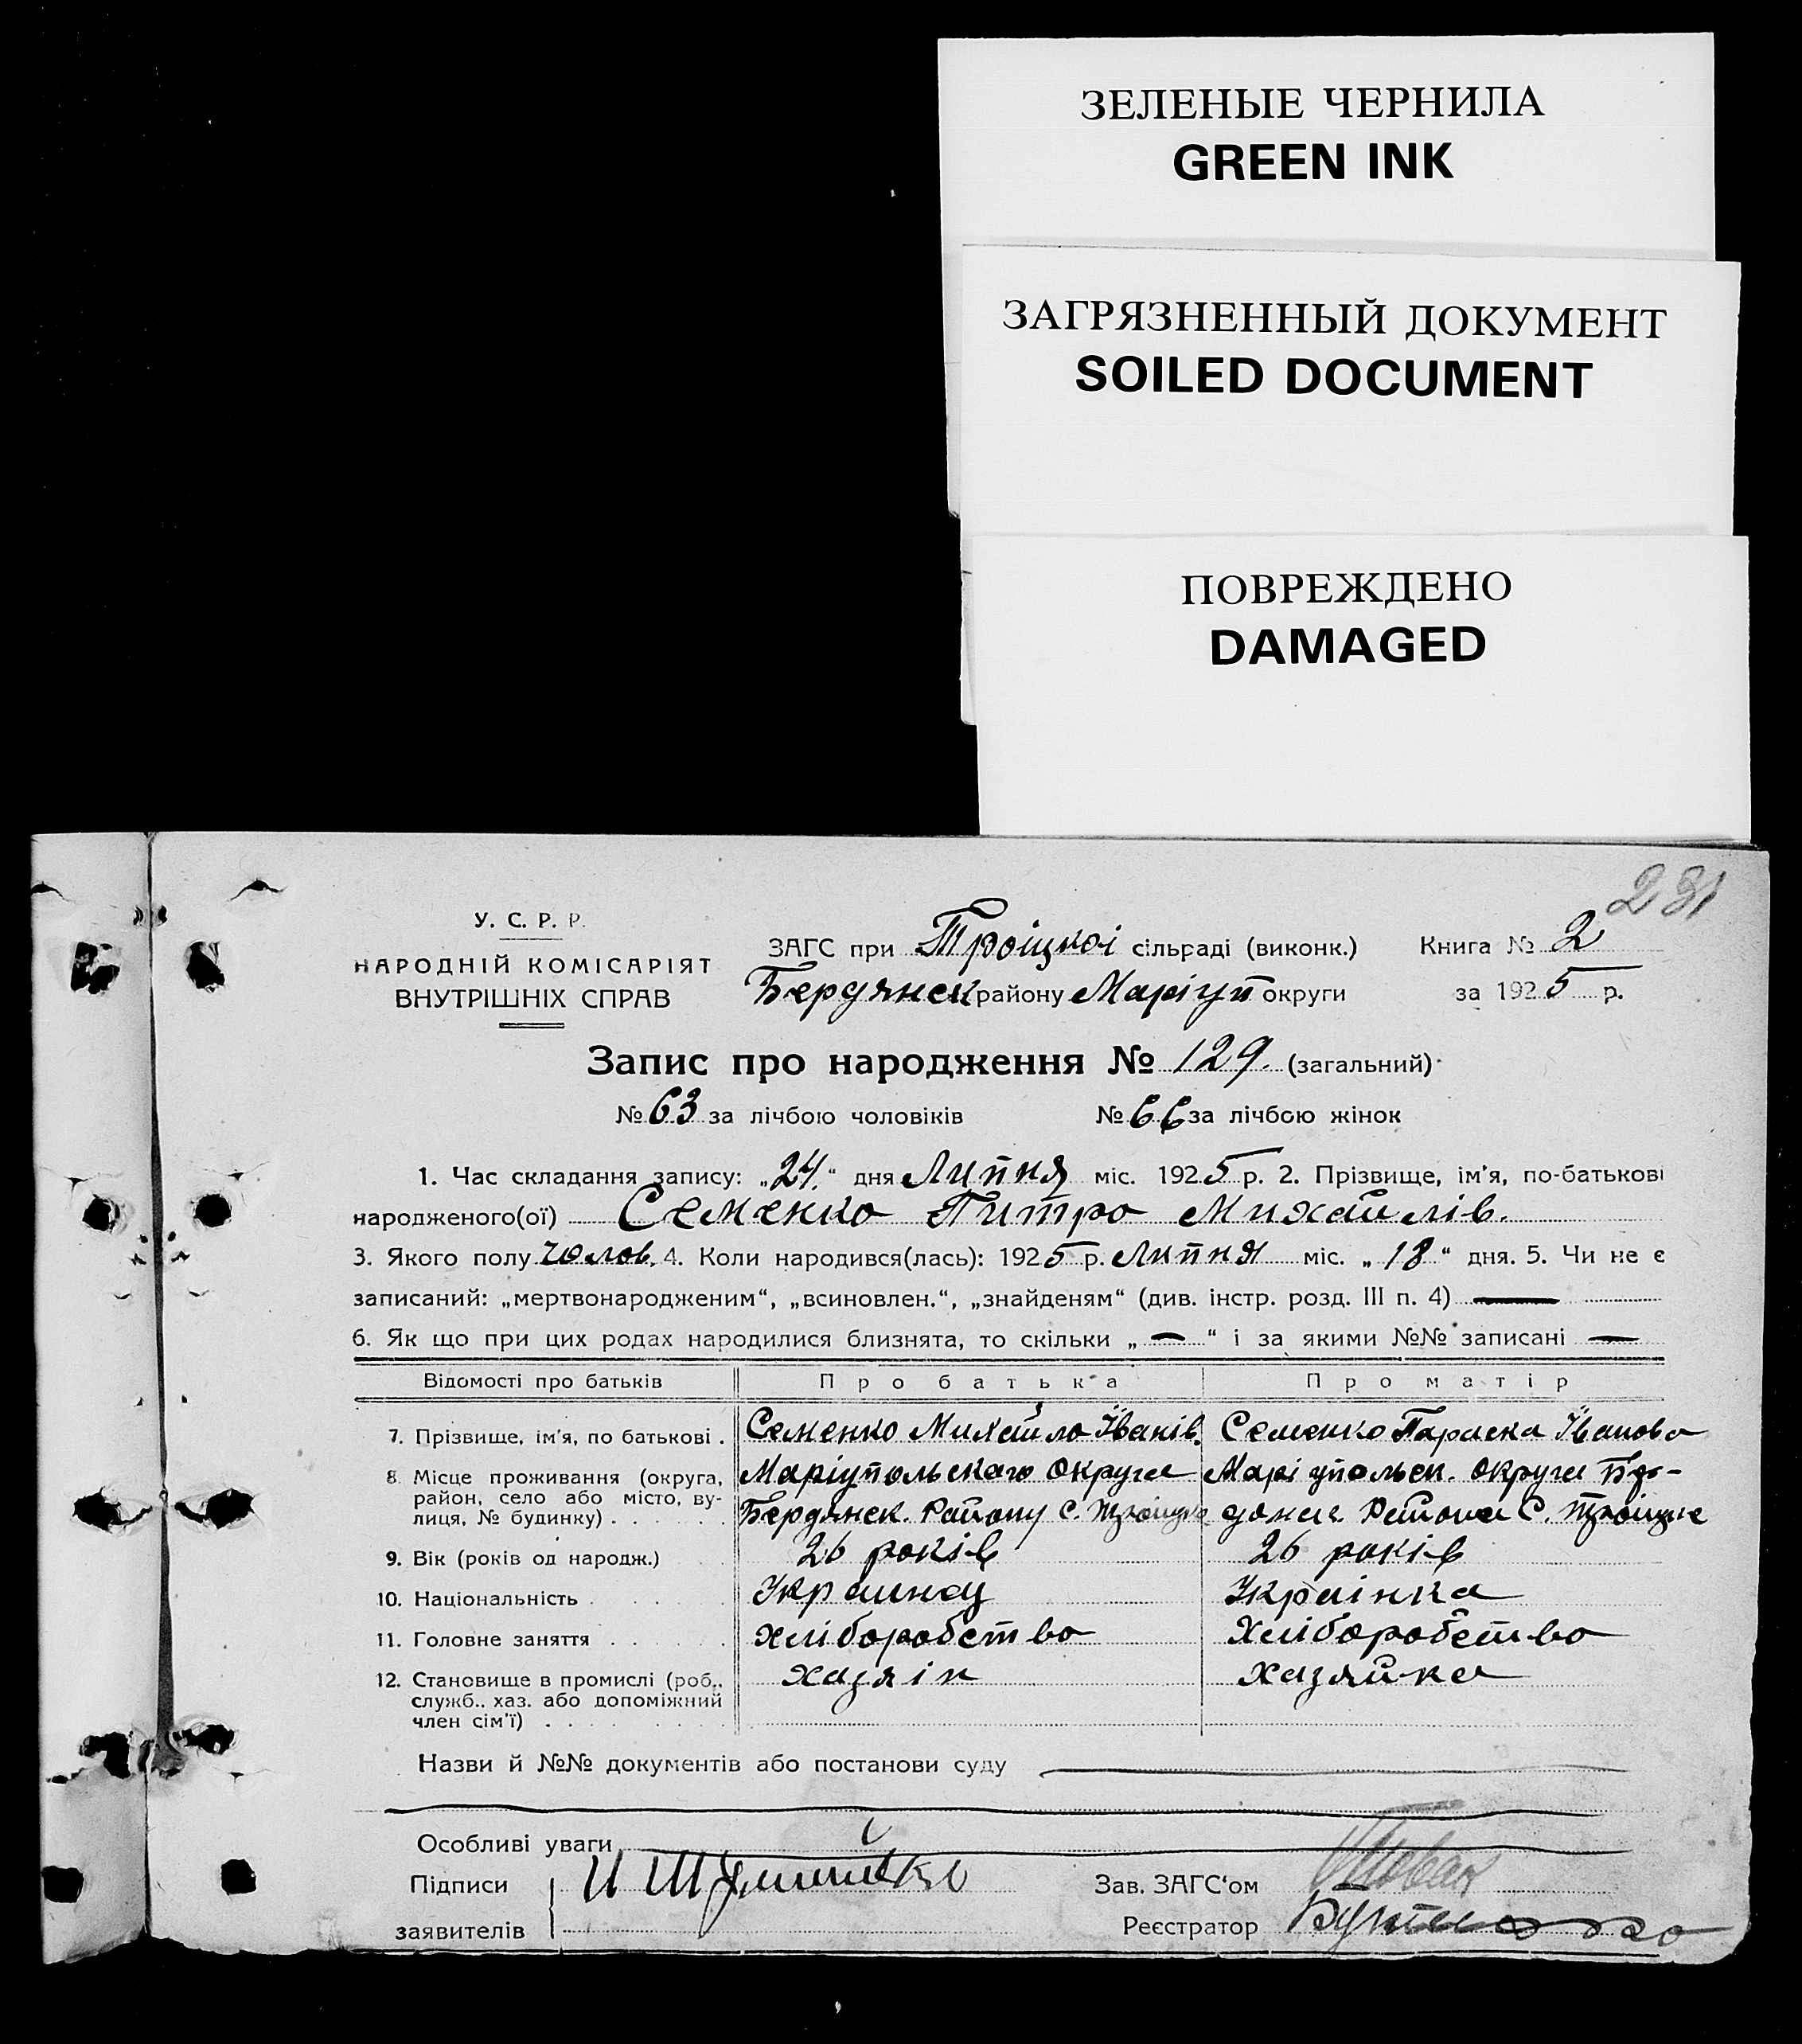 ЗЕЛЕНЫЕ ЧЕРНИЛА
GREEN INK
ЗАГРЯЗНЕННЫЙ ДОКУМЕНТ
SOILED DOCUMENT
ПОВРЕЖДЕНО
DAMAGED
231
У. С. Р. Р.
НАРОДНІЙ КОМІСАРІЯТ
ВНУТРІШНІХ СПРАВ
ЗАГС при Троіцкоі сільраді (виконк.) Книга № 2
Бердянск району Маріуп округи за 1925 р.
Запис про народження № 129. (загальний)
№ 63 за лічбою чоловіків № 66 за лічбою жінок
1. Час складання запису: „24.“ дня Липня міс. 1925 р. 2. Прізвище, ім'я, по-батькові
народженого(ої) Семенко Питро Михайлів.
3. Якого полу чолов. 4. Коли народився(лась): 1925 р. Липня міс. „18“ дня. 5. Чи не є
записаний: „мертвонародженим“, „всиновлен.“, „знайденям“ (див. інстр. розд. III п. 4) —
6. Як що при цих родах народилися близнята, то скільки „—“ і за якими №№ записані —
Відомості про батьків Про батька Про матір
7. Прізвище, ім'я, по батькові . Семенко Михайло Іванів. Семенко Параска Іванова
8. Місце проживання (округа, Маріупольскаго Округа Маріупольск. округи Бер-
район, село або місто, ву- Бердянск. Району С. Троіцке дянск. Района С. Троіцке
лиця, № будинку) . . . . . .
9. Вік (років од народж.) 26 років 26 років
10. Національність . . . . Украинец Украінка
11. Головне заняття . . . . . Хліборобство Хліборобство
12. Становище в промислі (роб., хазяін хазяйка
служб., хаз. або допоміжний
член сім'ї) . . . . . . . . .
Назви й №№ документів або постанови суду
Особливі уваги
Підписи Зав. ЗАГС'ом
заявителів Реєстратор